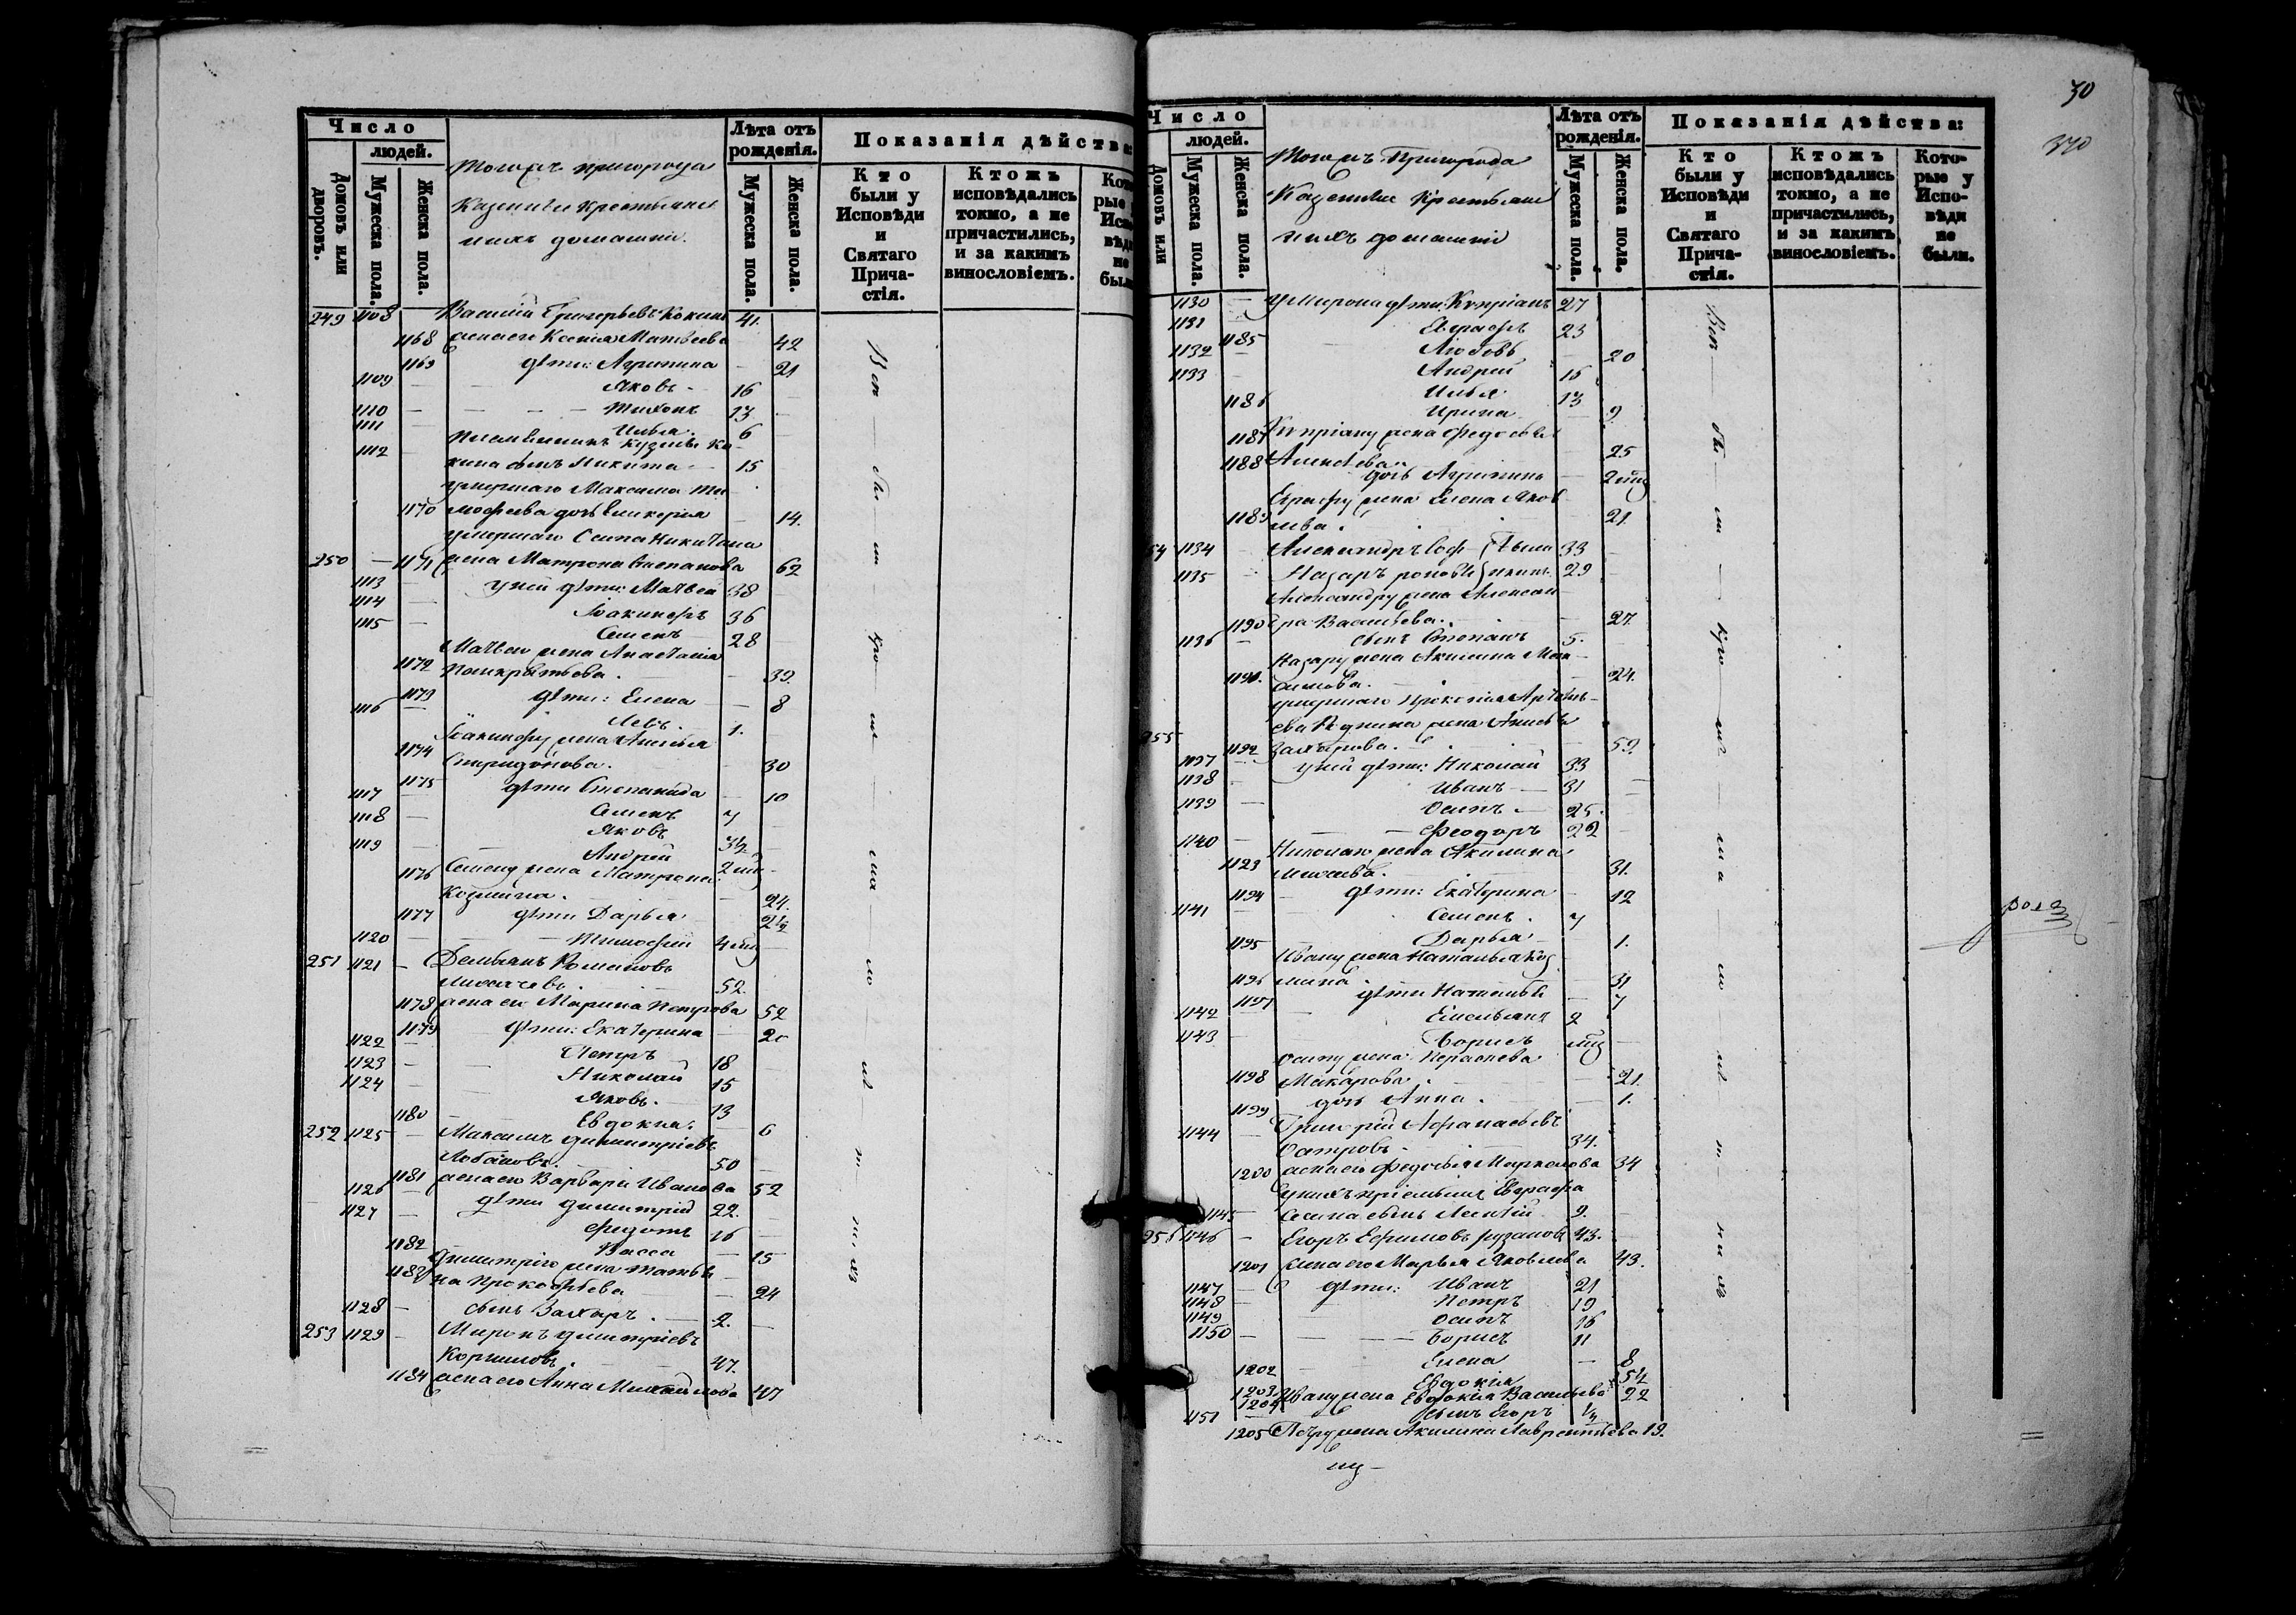 Число
людей.
Домовъ или дворовъ.
Мужеска пола.
Женска пола.
Тогожъ пригорода
Казенные крестьяне
и ихъ домашніи.
Лѣта отъ рожденія.
Мужеска пола.
Женска пола.
Показанія дѣйства:
Кто были у Исповѣди и Святаго Причастія.
Ктожъ исповѣдались токмо, а не причастились, и за какимъ винословіемъ.
249 1108 Василій Григорьевъ Кокинъ 41.
1168 жена его Ксенія Матвеева 42
1169 дѣти: Агрипина 21
1109 Яковъ 16
1110 Тихонъ 13
1111 Илья 6
1112 Кузьмы Ко-
кина сынъ Никита 15
умершаго Максима Ти-
1170 мофеева дочь Гликерия 14.
умершаго Осипа Никитина
250 1171 жена Матрона Степанова 62
1113 у ней дѣти: Матвей 38
1114 Іоакинфъ 36
1115 Семенъ 28
Матвею жена Анастасія
1172 Панкратьева. 39.
1173 дѣти: Елена 8
1116 Левъ. 1.
Іоакинфу жена Анисья
1174 Спиридонова. 30
1175 дѣти Степанида 10
1117 Семенъ 7
1118 Яковъ 3½
1119 Андрей 2 мѣс
1176 Семену жена Матрона
Козмина. 24.
1177 дѣти Дарья 2½
1120 Тимофей 4 мѣс
251 1121 Демьянъ Романовъ
Лихачевъ. 52.
1178 жена его Марина Петрова 52
1179 дѣти: Екатерина 20
1122 Петръ 18
1123 Николай 15
1124 Яковъ. 13
1180 Евдокия. 6
252 1125 Максимъ Димитріевъ
Лобановъ. 50
1181 жена его Варвара Иванова 52
1126 дѣти Димитрій 22.
1127 Федотъ 16
1182 Васса 15
Димитрію жена Татья-
1183 на Прокофьева 24
1128 сынъ Захаръ. 2.
253 1129 Миронъ Димитріевъ
Коршловъ. 47.
1184 жена его Анна Михайлова 47
30
370
Число
людей.
Домовъ или
Мужеска пола.
Женска пола.
Тогожъ Пригорода
Казенные Крестьяне
и ихъ домашніи
Лѣта отъ рожденія.
Мужеска пола.
Женска пола.
Показанія дѣйства:
Кто были у Исповѣди и Святаго Причастія.
Ктожъ исповѣдались токмо, а не причастились, и за какимъ винословіемъ.
Которые у Исповѣди не были.
1130 У Мирона дѣти: Купріанъ 27
1131 Евграфъ 23
1185 Любовь 20
1132 Андрей 15
1133 Илья 13
1186 Ирина 9.
1187 Купріану жена Федосья
Алексѣева. 25
1188 дочь Агрипина 2 мѣс
Евграфу жена Елена Яков-
1189 лева. 21.
54 1134 Александръ Соф- 33
1135 Назаръ роновы 29
Александру жена Алексан-
1190 дра Васильева. 27.
1136 сынъ Степанъ 5.
Назару жена Акилина Мак-
1191. симова. 24.
умершаго Прокопія Артемь-
ева жена Анисья
255 1192 Захарова. 59.
1137 у ней дѣти: Николай 33
1138 Иванъ 31
1139 Осипъ 25.
1140 Феодоръ 22
Николаю жена Акилина
1193 31.
1194 дѣти: Екатерина 12
1141 Семенъ. 7
1195 Дарья 1.
Ивану жена Наталья Коз-
1196 мина. 31
1197 дѣти Наталья 7
1142 Емельянъ 2
1143 Борисъ мѣс
Осипу жена
1198 Макарова. 21.
1199 дочь Анна. 1.
1144 Григорій Афанасьевъ
Островъ. 34.
1200 жена его Федосья Маркелова 34
у нихъ пріемышъ Евграфа
1145 сынъ 9.
256 1146 Егоръ Ефимовъ 43.
1201 жена его Марья Яковлева 43.
1147 дѣти: Иванъ 21
1148 Петръ 19
1149 Осипъ 16
1150 Борисъ 11
1202 Елена 8
1203. Евдокія 5½
1204 Ивану жена Евдокія Васильева 22
1151 сынъ Егоръ ¼
1205 Петру жена Акилина Лаврентьева 19.